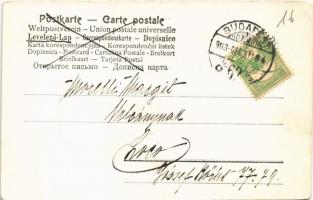 Postkarte — Carte postale
Weltpostverein — Union postale universelle
Levelező-Lap — Correspondenzkarte — Dopisnice
Karta korespondencyjna — Korespondenční lístek
Dopisnica — Postcard — Cartolina Postale — Brefkort
Briefkaart — Tarjeta Postal
Открытое письмо — Дописна карта
16
BUDAPEST
Morelli Margit
Loco
József körút 77-79.